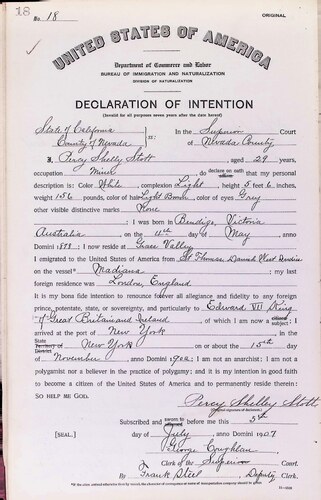 18
No. 18
ORIGINAL
UNITED STATES OF AMERICA
Department of Commerce and Labor
BUREAU OF IMMIGRATION AND NATURALIZATION
DIVISION OF NATURALIZATION
DECLARATION OF INTENTION
(Invalid for all purposes seven years after the date hereof)
State of California
County of Nevada } ss: In the Superior Court of Nevada County
I, Percy Shelly Stott, aged 29 years,
occupation Miner, do declare on oath that my personal
description is: Color White, complexion Light, height 5 feet 6 inches,
weight 156 pounds, color of hair Light Brown, color of eyes Grey
other visible distinctive marks None
; I was born in Bendigo, Victoria
Australia on the 11th day of May, anno
Domini 1878; I now reside at Grass Valley
I emigrated to the United States from St Thomas, Danish West Indies
on the vessel Madiana; my last
foreign residence was London, England
It is my bona fide intention to renounce forever all allegiance and fidelity to any foreign
prince, potentate, state, or sovereignty, and particularly to Edward VII King
of Great Britain and Ireland, of which I am now a subject; I
arrived at the port of New York, in the
State Territory District of New York on or about the 15th day
of November, anno Domini 1902; I am not an anarchist; I am not a
polygamist nor a believer in the practice of polygamy; and it is my intention in good faith
to become a citizen of the United States and to permanently reside therein:
SO HELP ME GOD.
Percy Shelley Stott
(Original signature of declarant.)
Subscribed and sworn to before me this 5th
[SEAL.] day of July, anno Domini 1907
George Coughlan
Clerk of the Superior Court.
By Frank Steel, Deputy Clerk.